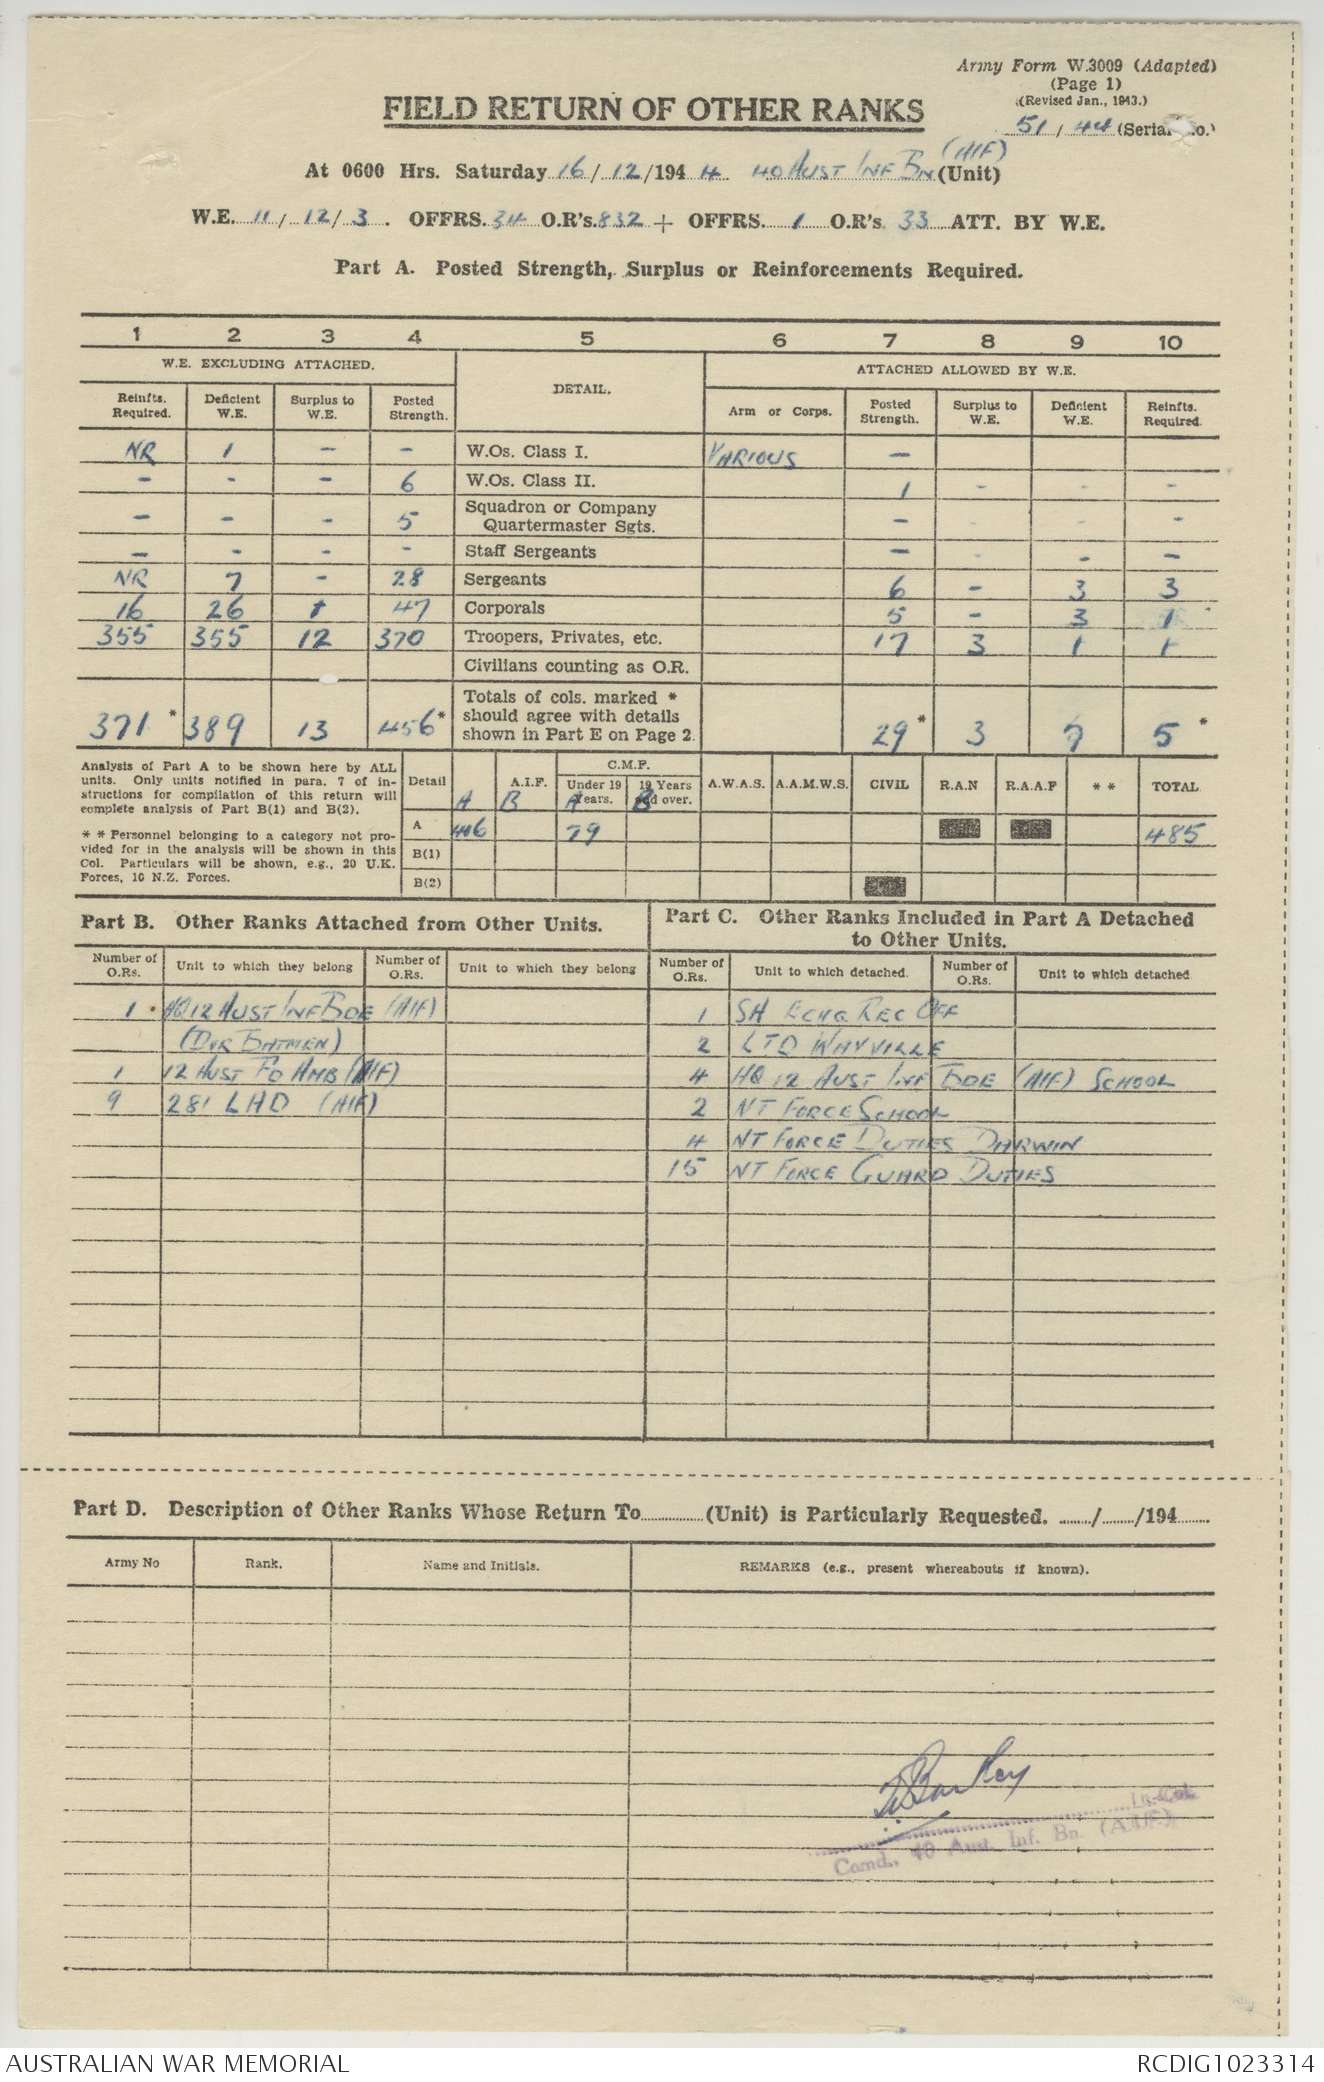 Army Form W.3009 (Adapted)
(Page 1)
(Revised Jan., 1943.)
FIELD RETURN OF OTHER RANKS
51 / 44 (Serial No.)
At 0600 Hrs. Saturday 16 / 12 /194 4. 40 AUST INF BN (AIF) (Unit)
W.E. 11 / 12 / 3 . OFFRS. 34 O.R's. 832 + OFFRS. 1 O.R's. 33 ATT. BY W.E.
Part A. Posted Strength, Surplus or Reinforcements Required.
1 2 3 4 5 6 7 8 9 10
W.E. EXCLUDING ATTACHED. DETAIL. ATTACHED ALLOWED BY W.E.
Reinfts. Required. Deficient W.E. Surplus to W.E. Posted Strength. Arm or Corps. Posted Strength. Surplus to W.E. Deficient W.E. Reinfts. Required.
NR 1 - - W.Os. Class I. VARIOUS -
- - - 6 W.Os. Class II. 1 - - -
- - - 5 Squadron or Company Quartermaster Sgts. - - - -
- - - - Staff Sergeants - - - -
NR 7 - 28 Sergeants 6 - 3 3
16 26 1 47 Corporals 5 - 3 1
355 355 12 370 Troopers, Privates, etc. 17 3 1 1
Civilians counting as O.R.
371 * 389 13 456 * Totals of cols. marked * should agree with details shown in Part E on Page 2. 29 * 3 7 5 *
Analysis of Part A to be shown here by ALL
units. Only units notified in para. 7 of in-
structions for compilation of this return will
complete analysis of Part B(1) and B(2).
* * Personnel belonging to a category not pro-
vided for in the analysis will be shown in this
Col. Particulars will be shown, e.g., 20 U.K.
Forces, 10 N.Z. Forces.
Detail A.I.F. C.M.F. A.W.A.S. A.A.M.W.S. CIVIL R.A.N R.A.A.F * * TOTAL
Under 19 Years. 19 Years and over.
A B A B
A 406 79 485
B(1)
B(2)
Part B. Other Ranks Attached from Other Units.
Number of O.Rs. Unit to which they belong Number of O.Rs. Unit to which they belong
1 HQ 12 AUST INF BDE (AIF)
(DVR BATMEN)
1 12 AUST FD AMB (AIF)
9 281 LAD (AIF)
Part C. Other Ranks Included in Part A Detached
to Other Units.
Number of O.Rs. Unit to which detached. Number of O.Rs. Unit to which detached
1 SA ECHG REC OFF
2 LTD WAYVILLE
4 HQ 12 AUST INF BDE (AIF) SCHOOL
2 NT FORCE SCHOOL
4 NT FORCE DUTIES DARWIN
15 NT FORCE GUARD DUTIES
Part D. Description of Other Ranks Whose Return To ............ (Unit) is Particularly Requested. ....../....../194......
Army No Rank. Name and Initials. REMARKS (e.g., present whereabouts if known).
Lt-Col.
Comd., 40 Aust. Inf. Bn. (A.I.F.)
AUSTRALIAN WAR MEMORIAL
RCDIG1023314